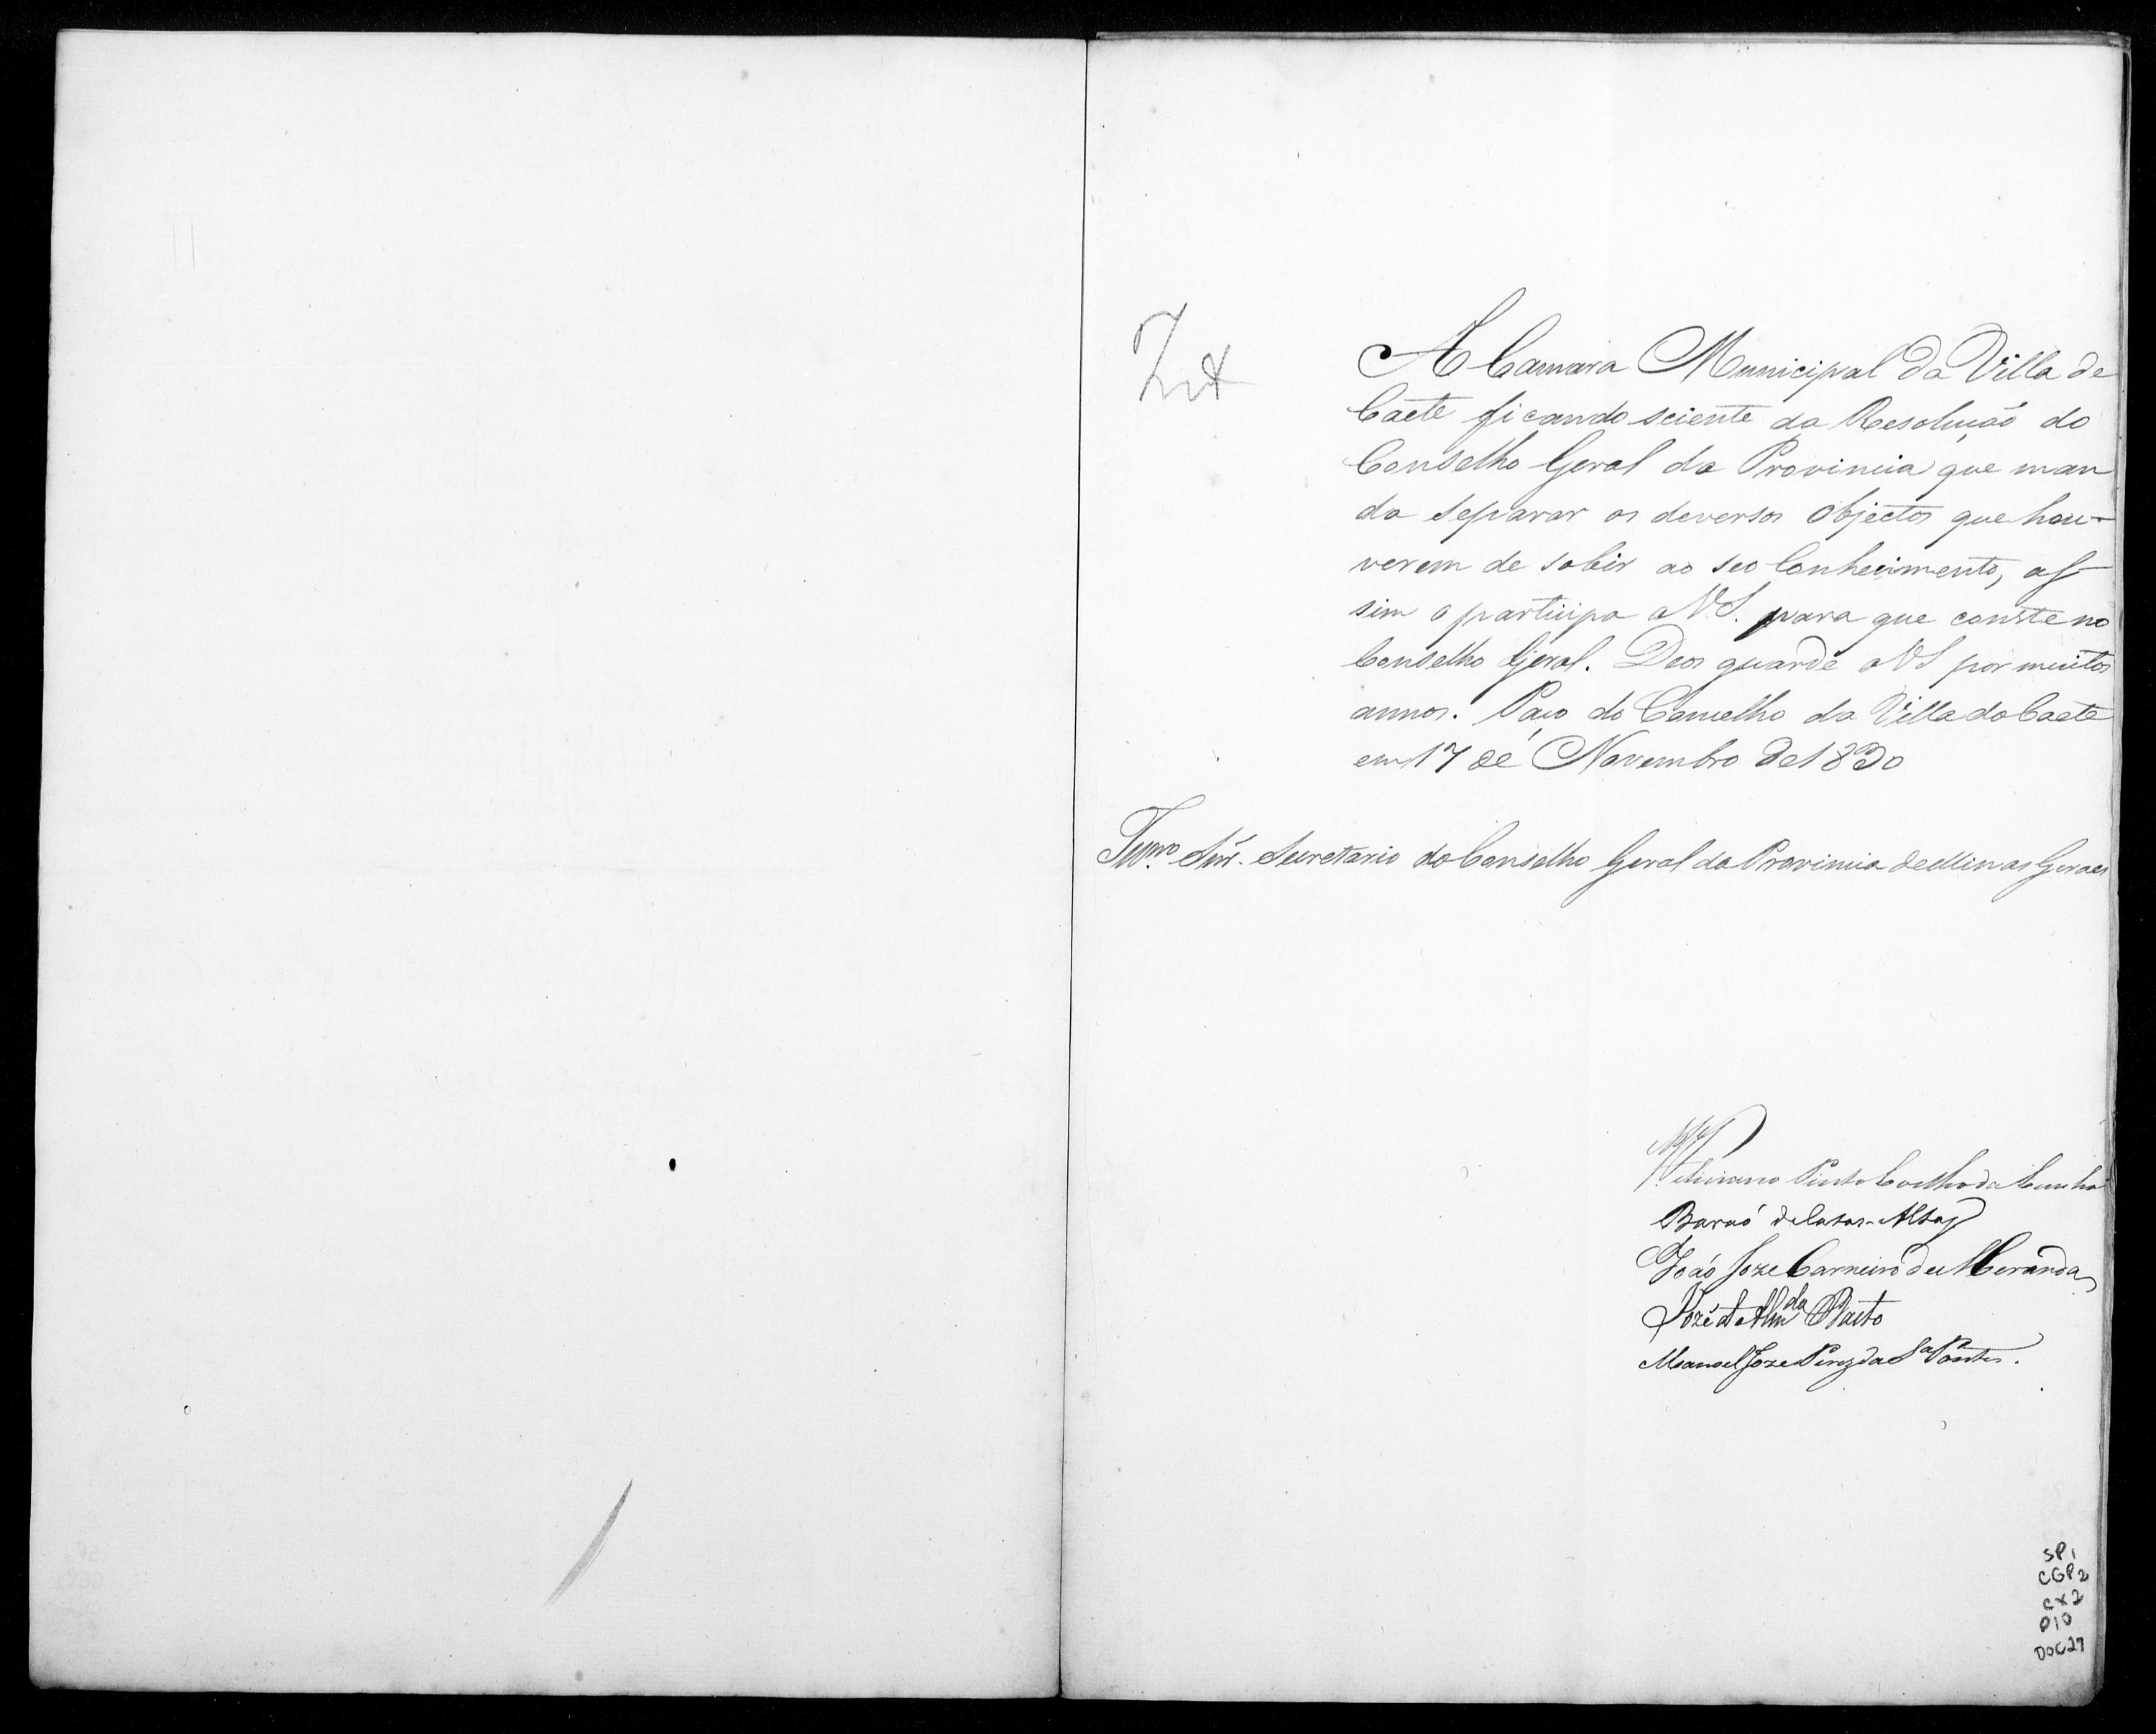 A Camara Municipal da Villa de
Caete ficando sciente da Resolução do
Conselho Geral da Provincia que man
da separar os deversos objectos que hou-
verem de sobir ao seo Conhecimento, as-
sim o participa a V.S. para que conste no
Conselho Geral. Deos guarde a V S por muitos
annos. Paço do Concelho da Villa do Caete
em 17 de Novembro de 1830
Illmo Snr. Secretario do Conselho Geral da Provincia de Minas Geraes
Feliciano Pinto Coelho da Cunha
Baraó de Catas-Altas
João Joze Carneiro de Meranda
Jozé de Almda
Manoel Joze Pires da Sa Pontes.
SP1
CGP2
CX2
010
DOC27